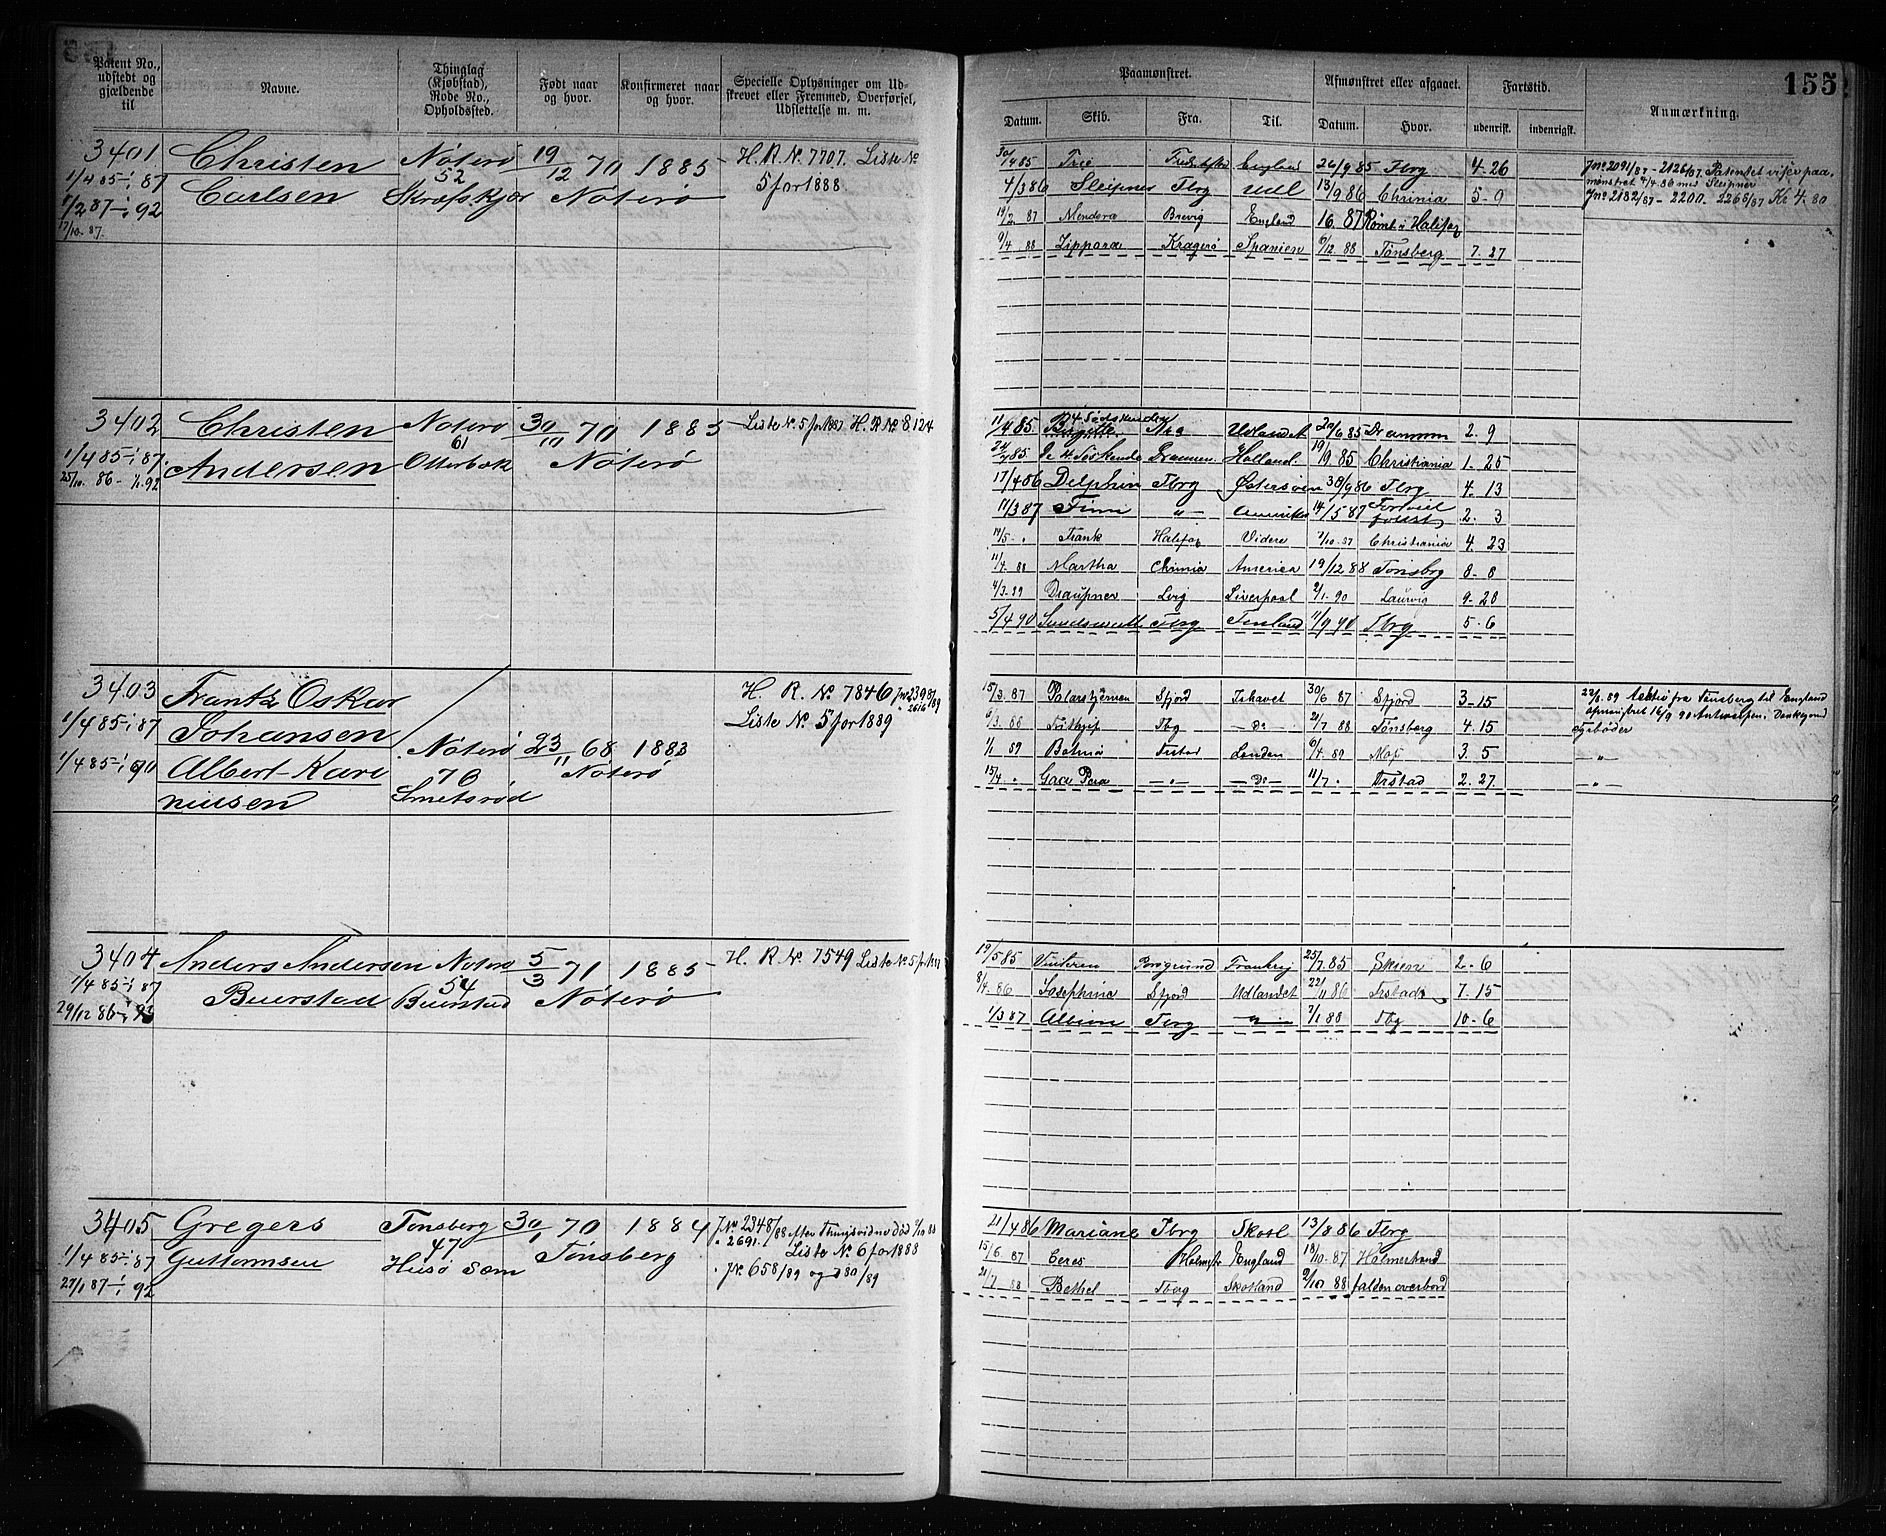 155
Patent No., udstedt og gjældende til
Navne.
Thinglag (Kjøbstad), Rode No., Opholdssted.
Født naar og hvor.
Konfirmeret naar og hvor.
Specielle Oplysninger om Udskrevet eller Fremmed, Overførsel, Udslettelse m. m.
Paamønstret.
Afmønstret eller afgaaet.
Fartstid.
Anmærkning.
Datum. Skib. Fra. Til. Datum. Hvor. udenrigsk. indenrigsk.
3401 Christen Nøterø 19/12 70 1885 H. R. No. 7707. Liste No
1/4 85 - 1/1 87 Carlsen 52 Nøterø 5 for 1888
1/2 87 - 1/1 92
17/10. 87.
30/4 85 England 26/9 85 Tbrg 4. 26
4/3 86 Sleipner Tbrg Udl 13/9 86 Chrinia 5. 9
19/2 87 Brevig England 16. 87 Rømt i Halifax
9/4 88 Zippora Kragerø Spanien 6/12 88 Tønsberg 7. 27
Patentet viser paa-
mønstret 4/4 86 med Sleipner
3402 Christen Nøterø 30/11 70 1885 Liste No. 5 for H. R. No 8124
1/4 85 - 1/1 87. Andersen 61 Nøterø
25/10. 86 - 1/1. 92 Otterbæk
11/4 85 Birgitte Udlandet 20/6 85 Drammen 2. 9
24/7 85 De 4 Søskende Drammen Holland. 19/9 85 Christiania 1. 25
17/4 86 Delphin Tbrg Østersøen 30/9 86 Tbrg 4. 13
11/3 87 Finn " 14/5 87 2. 3
14/5 . Frank Halifax Videre 7/10. 87 Christiania 4. 23
11/4. 88 Martha Chrinia America 19/12 88 Tønsbrg 8. 8
4/3. 89 Draupner Liverpool 9/1. 90 Laurvig 9. 20
5/4 90 Sundsvall Tbrg Finland 11/9 90 Tbrg 5. 6
3403 Frantz Oskar H. R. No 7846
1/4 85 - 1/1 87 Johansen Liste No. 5 for 1889
1/4 85 - 1/1 90 Albert Kari Nøterø 23/11 68 1883
niusen 76 Nøterø
Smetsrød
15/3. 87 Polarstjernen Sfjord Ishavet 30/6 87 Sfjord 3. 15
6/3. 88 Fridtjof Tbg Do 21/7 88 Tønsberg 4. 15
1/1 89 London 6/4. 89 3. 5
15/4. Do 11/7. Frstad 2. 27.
fra Tønsberg til England
16/9 90 Antwerpen.
3404 Anders Andersen Nøterø 5/3 71 1885 H. R. No. 7549 Liste No. 5 for
1/4 85 - 1/1 87 Buerstad 54 Nøterø
29/12 86 - 1/1 Buerstad
19/5 85 Vinteren Porsgrund Frankrig 25/7. 85 Skien 2. 6
8/4. 86 Josephina Sfjord Udlandet 22/11 86 Frstad 7. 15
1/3 87 Albion Tbrg " 7/1 88 Tbg 10. 6
3405 Gregers Tønsberg 30/1 70 1884 J No. 2348/88 efter
1/4 85 - 1/1 87 Guttormsen 47 Tønsberg " 2691. Liste No 6 for 1888
27/1 87 - 1/1 92 Husø Sem J No. 658/89 og 880/89
21/4 86 Mariane Tbrg 13/8 86 Tbrg
15/6. 87 Ceres Holmstr England 18/10. 87 Holmestrand
21/7 88 Bethel Tbrg Skotland 9/10 88 falden overbord